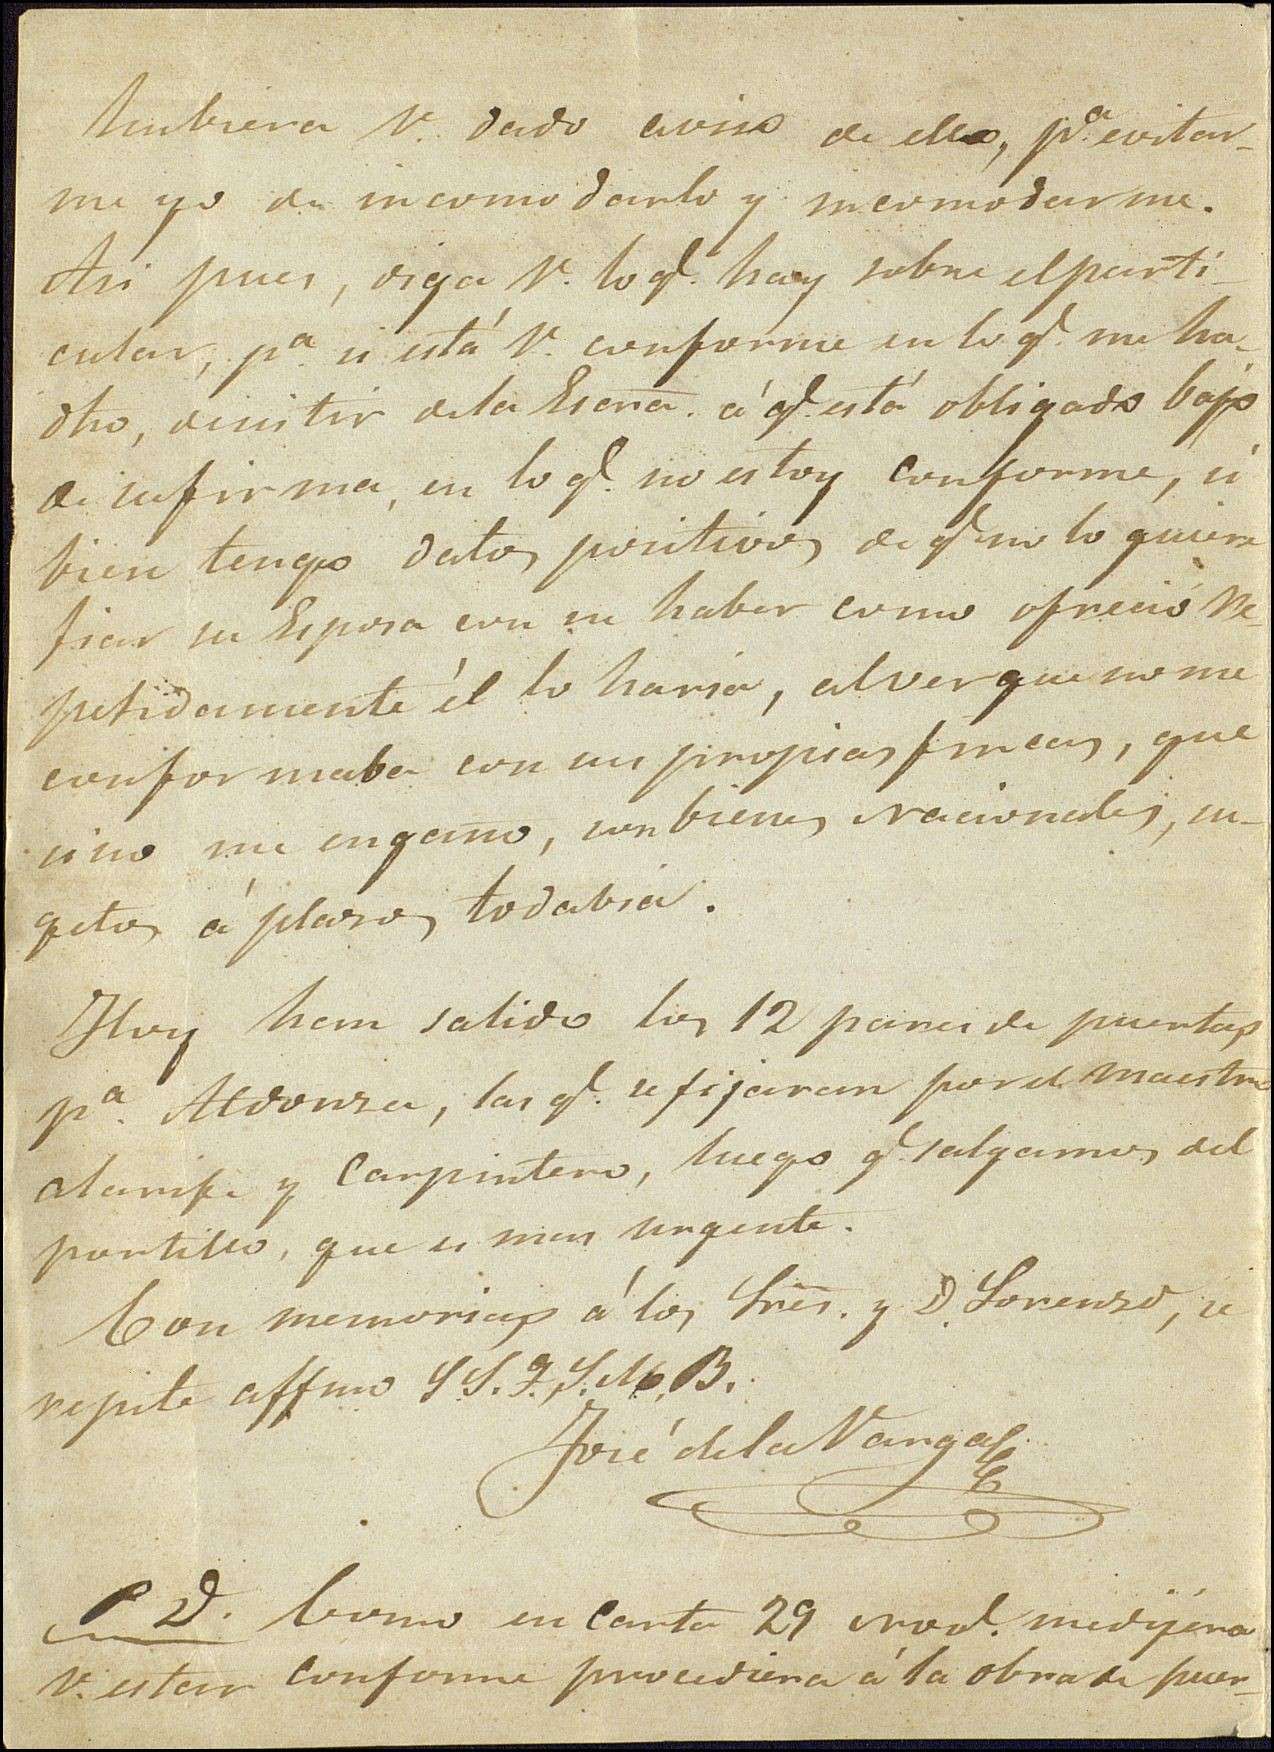 hubiera V. dado aviso de ello, pª evitar-
me yo de incomodarlo y incomodarme.
Asi pues, diga V. lo q.e hay sobre el parti-
cular, pª si está V. conforme en lo q.e me ha
dho, desistir de la Escra. á q.e está obligado bajo
de su firma, en lo q.e no estoy conforme, si
bien tengo datos positivos de q.e no lo quiere
fiar su Esposa con su haber como ofreció re-
petidamente él lo haria, al ver que no me
conformaba con sus propias fincas, que
sino me engaño, son bienes nacionales, su-
getos á plazos todabia.
Hoy han salido los 12 pares de puertas
pª. Aldonza, las q.e se fijaran por el maestro
alarife y Carpintero, luego q.e salgamos del
portillo, que es mas urgente.
Con memorias á los Sres. y D. Lorenzo, se
repite affmo S S. Q. S. M. B.
José de la Varga
P D. Como en carta 29 Novd. me dijera
V. estar conforme procediera á la obra de puer-